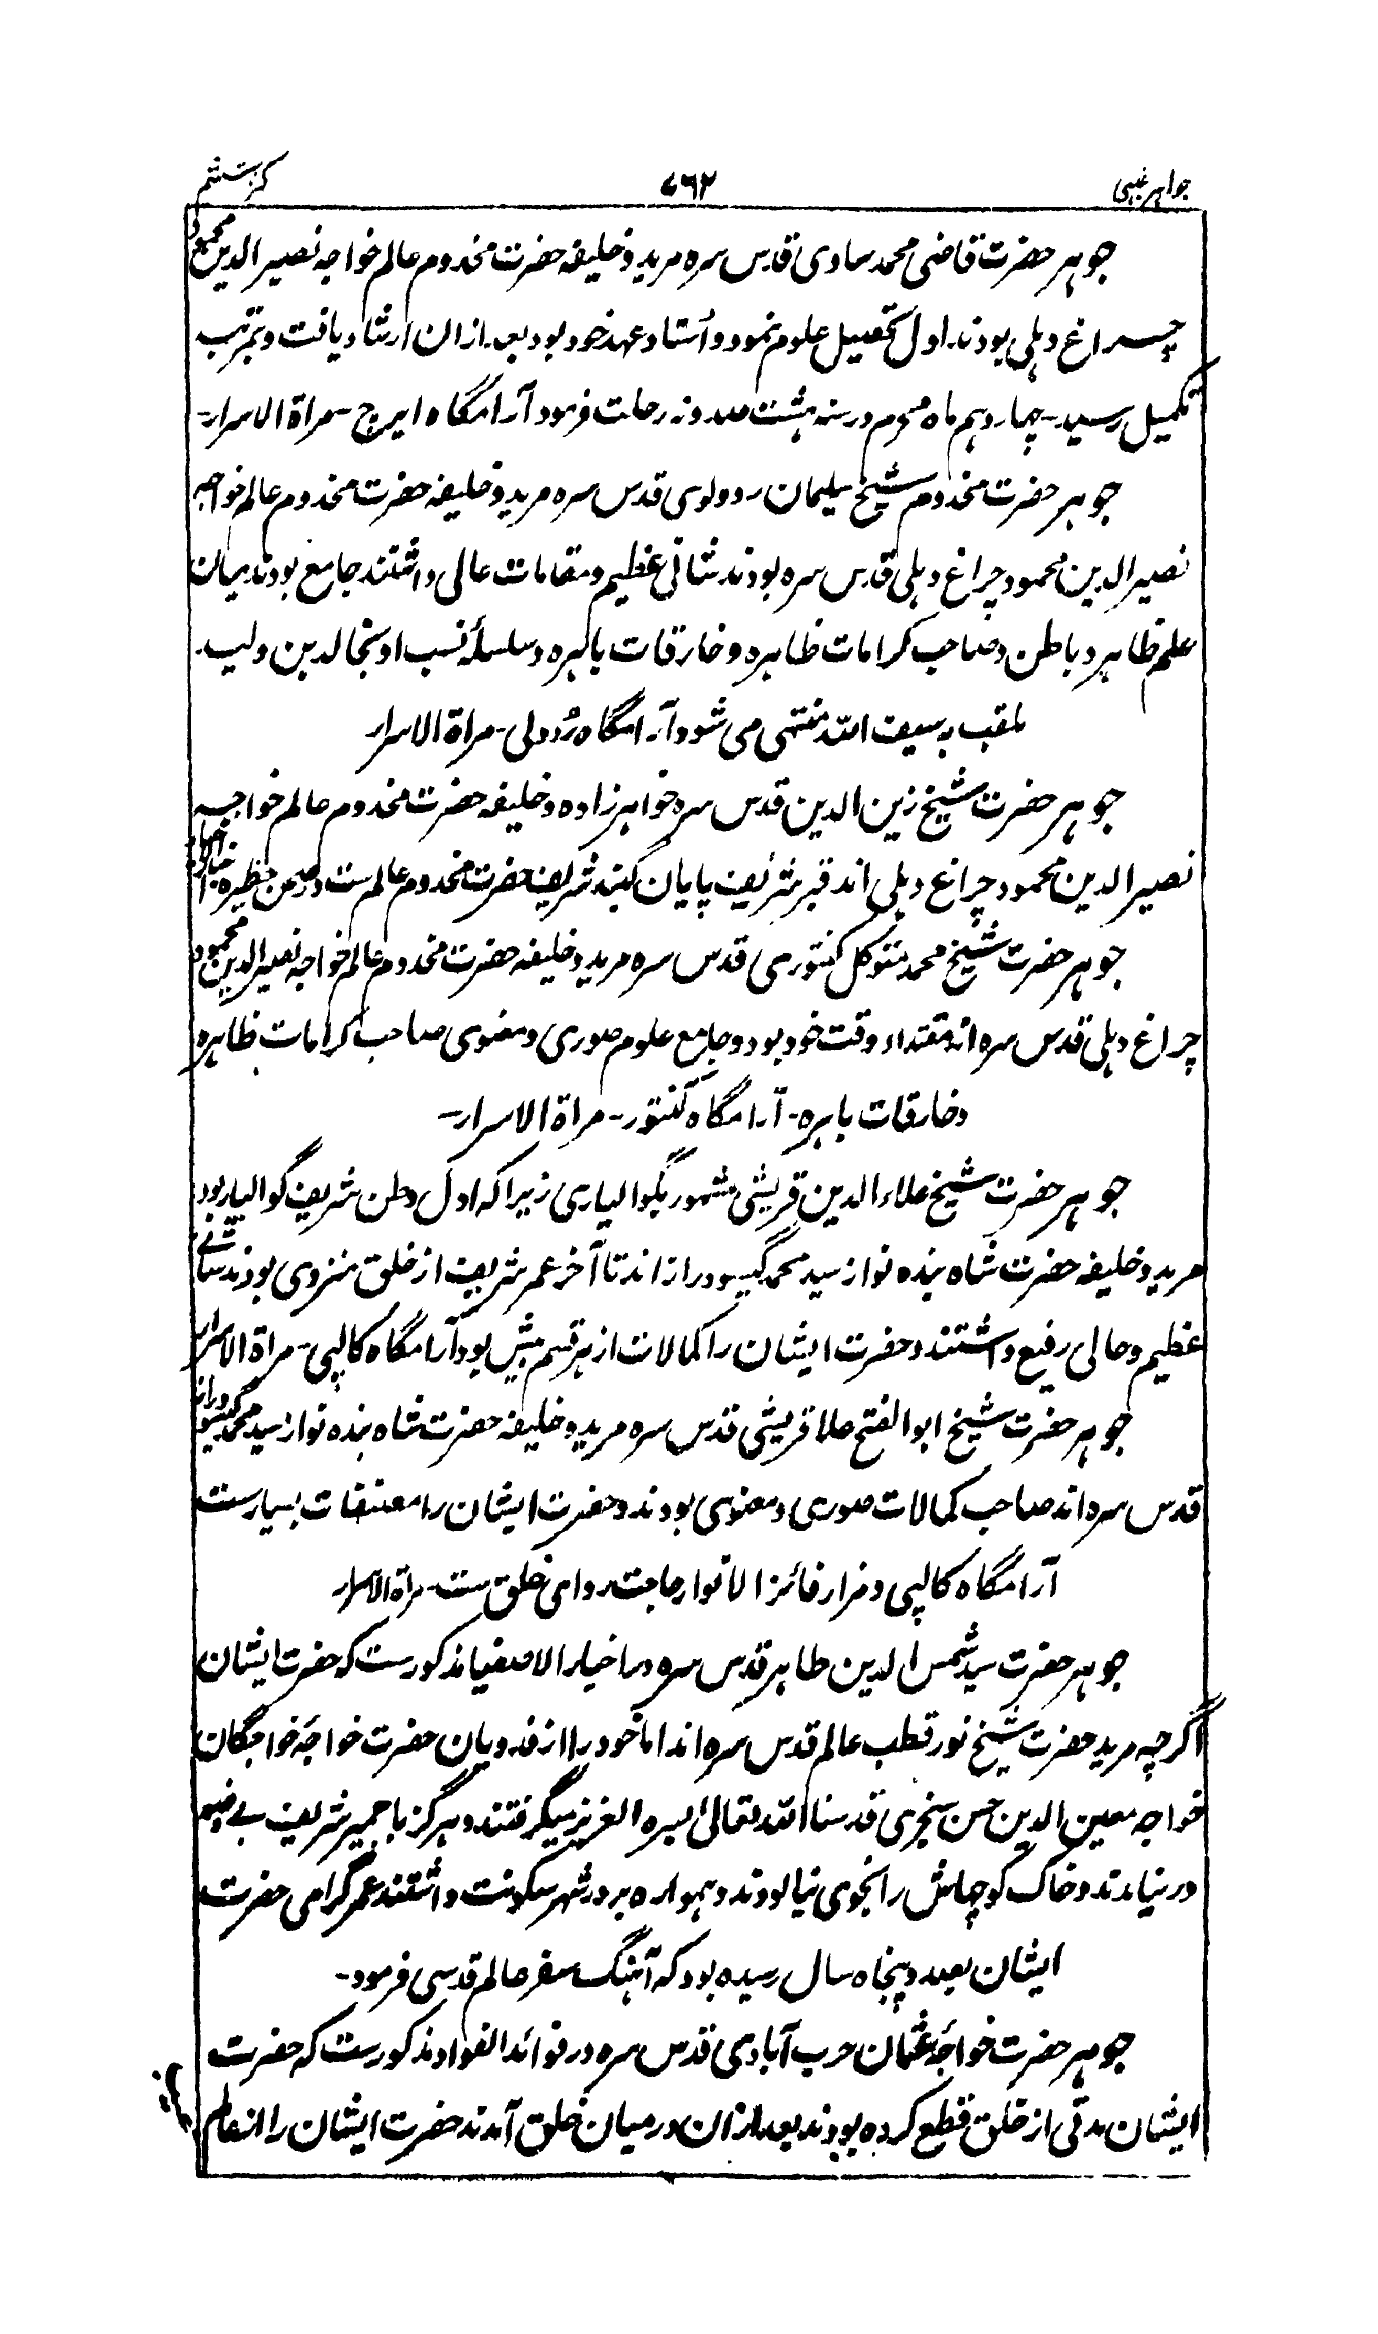 جواهر غیبی
۷۶۲
کنز ششم
جوهر حضرت قاضی محمد ساوی قدس سره مرید و خلیفه حضرت مخدوم عالم خواجه نصیر الدین محمود
چراغ دہلی بودند اول تحصیل علوم نمود و اُستاد عہد خود بود بعد ازان ارشاد یافت و بمرتبۂ
تکمیل رسید۔ چهاردہم ماه محرم در سنہ ہشت صد و نہ رحلت فرمود آرامگاه ایرج۔ مراة الاسرار۔
جوهر حضرت مخدوم شیخ سلیمان رودولوی قدس سره مرید و خلیفه حضرت مخدوم عالم خواجه
نصیر الدین محمود چراغ دہلی قدس سره بودند شانی عظیم و مقامات عالی داشتند جامع بودند میان
علم ظاہر و باطن و صاحب کرامات ظاہره و خارقات باہره و سلسلۂ نسب او بخالد بن ولید
ملقب بہ سیف اللہ منتہی می شود آرامگاه رُدولی۔ مراة الاسرار
جوهر حضرت شیخ زین الدین قدس سره خواہرزاده و خلیفه حضرت مخدوم عالم خواجه
نصیر الدین محمود چراغ دہلی اند قبر شریف پایان گنبد شریف حضرت مخدوم عالم ست در صحن حظیره۔ اخبار الاخیار
جوهر حضرت شیخ محمد متوکل کنتوری قدس سره مرید و خلیفه حضرت مخدوم عالم خواجه نصیر الدین محمود
چراغ دہلی قدس سره اند مقتداء وقت خود بود و جامع علوم صوری و معنوی صاحب کرامات ظاہره
و خارقات باہره۔ آرامگاه کنتور۔ مراة الاسرار۔
جوهر حضرت شیخ علاء الدین قریشی مشہور بگوالیاری زیرا کہ اول وطن شریف گوالیار بود
مرید و خلیفه حضرت شاه بنده نواز سید محمد گیسودراز اند تا آخر عمر شریف از خلق منزوی بودند شانے
عظیم و حالی رفیع داشتند و حضرت ایشان را کمالات از ہر قسم بیش بود آرامگاه کالپی۔ مراة الاسرار
جوهر حضرت شیخ ابوالفتح علا قریشی قدس سره مرید و خلیفه حضرت شاه بنده نواز سید محمد گیسودراز
قدس سره اند صاحب کمالات صوری و معنوی بودند و حضرت ایشان را مصنفات بسیار ست
آرامگاه کالپی و مزار فائز الانوار حاجت روای خلق ست۔ مراة الاسرار
جوهر حضرت سید شمس الدین طاہر قدس سره در اخبار الاصفیا مذکور ست کہ حضرت ایشان
اگرچہ مرید حضرت شیخ نور قطب عالم قدس سره اند اما خود را از فدویان حضرت خواجۂ خواجگان
خواجہ معین الدین حسن سنجری قدسنا اللہ تعالیٰ بسره العزیز میگرفتند و ہرگز باجمیر شریف بے وضو
در نیامدند و خاک کوچہاش را بخوی نیالودند و ہمواره بر در شہر سکونت داشتند عمر گرامی حضرت
ایشان بصد و پنجاه سال رسیده بود کہ آہنگ سفر عالم قدسی فرمود۔
جوهر حضرت خواجۂ عثمان حرب آبادی قدس سره در فوائد الفواد مذکور ست کہ حضرت
ایشان مدتی از خلق قطع کرده بودند بعد ازان درمیان خلق آمدند حضرت ایشان را از عالم